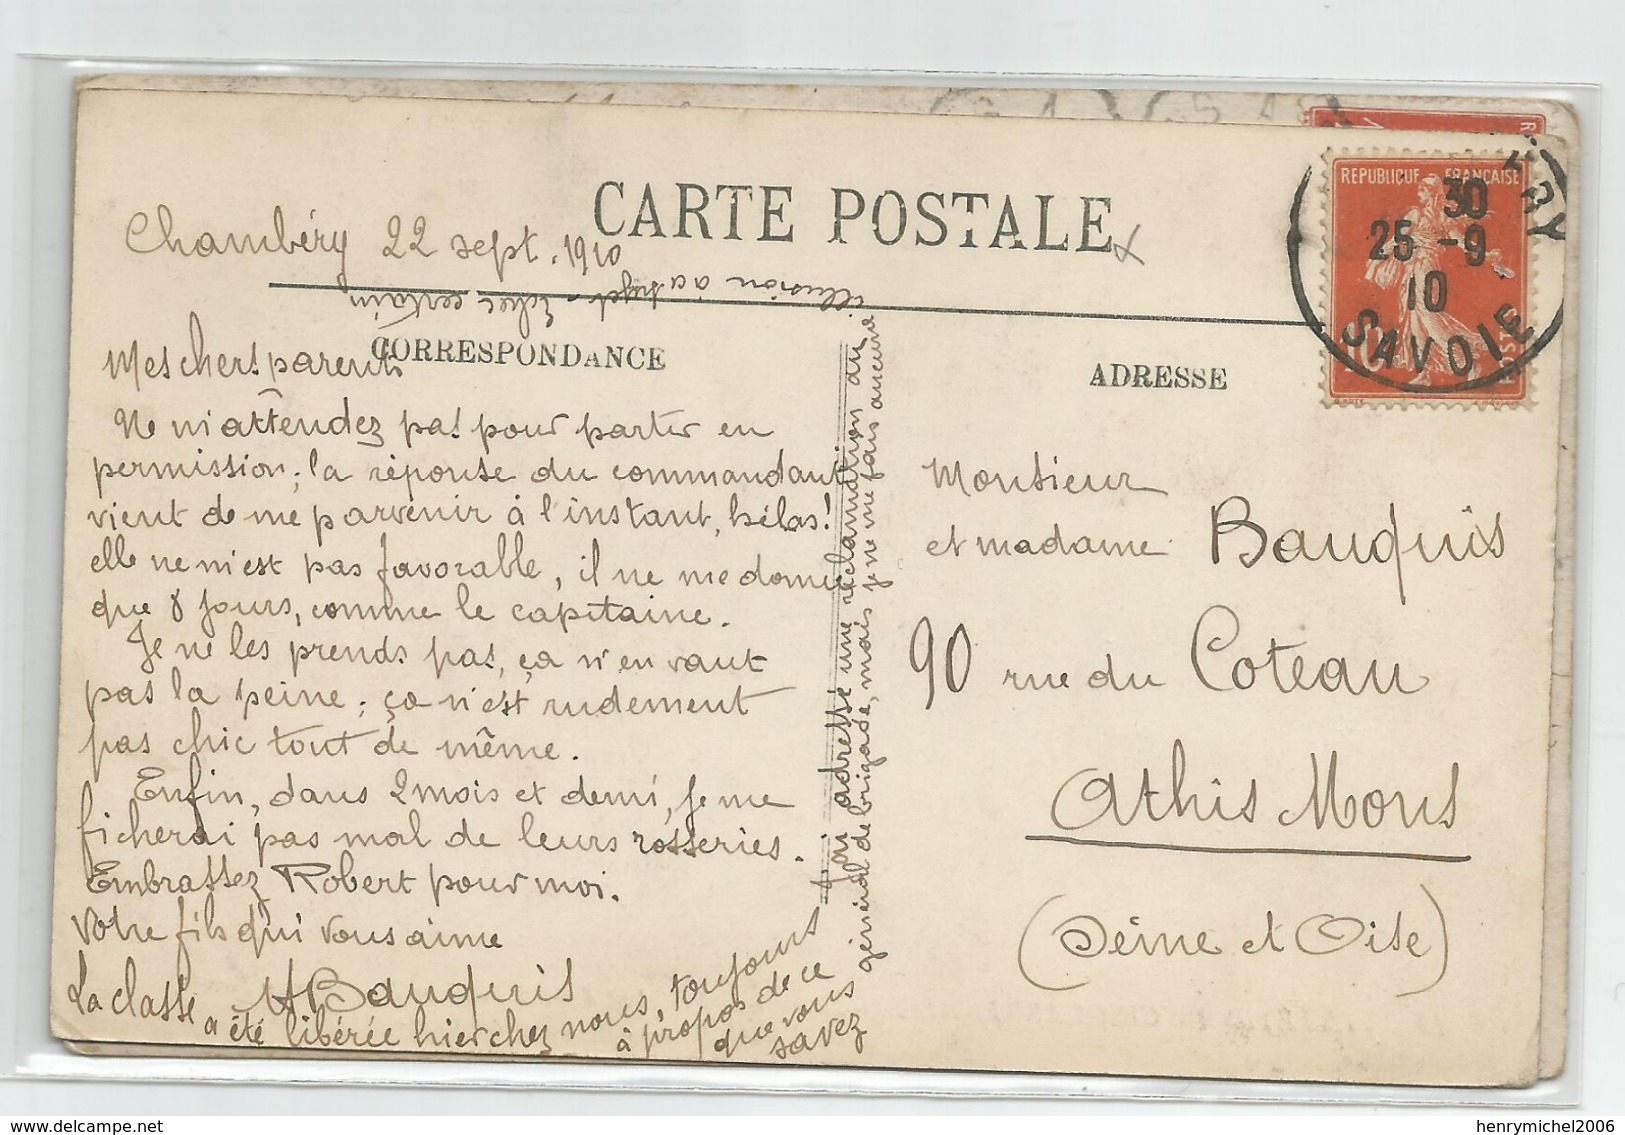 CARTE POSTALE
Chambéry 22 sept. 1910
CORRESPONDANCE
Mes chers parents
Ne m'attendez pas pour partir en
permission; la réponse du commandant
vient de me parvenir à l'instant, hélas!
elle ne m'est pas favorable, il ne me donne
que 8 jours, comme le capitaine.
Je ne les prends pas, ça n'en vaut
pas la peine; ça n'est rudement
pas chic tout de même.
Enfin, dans 2 mois et demi, je me
ficherai pas mal de leurs rosseries.
Embrassez Robert pour moi.
Votre fils qui vous aime
HBauquis
La classe a été libérée hier chez nous, toujours
à propos de ce
que vous
savez
J'ai adressé une réclamation au
général de brigade, mais je ne me fais aucune
illusion à ce sujet - Echec certain
ADRESSE
Monsieur
et madame Bauquis
90 rue du Coteau
Athis Mons
(Seine et Oise)
REPUBLIQUE FRANÇAISE
10
POSTES
30
25 -9
10
SAVOIE
henrymichel2006
delcampe.net